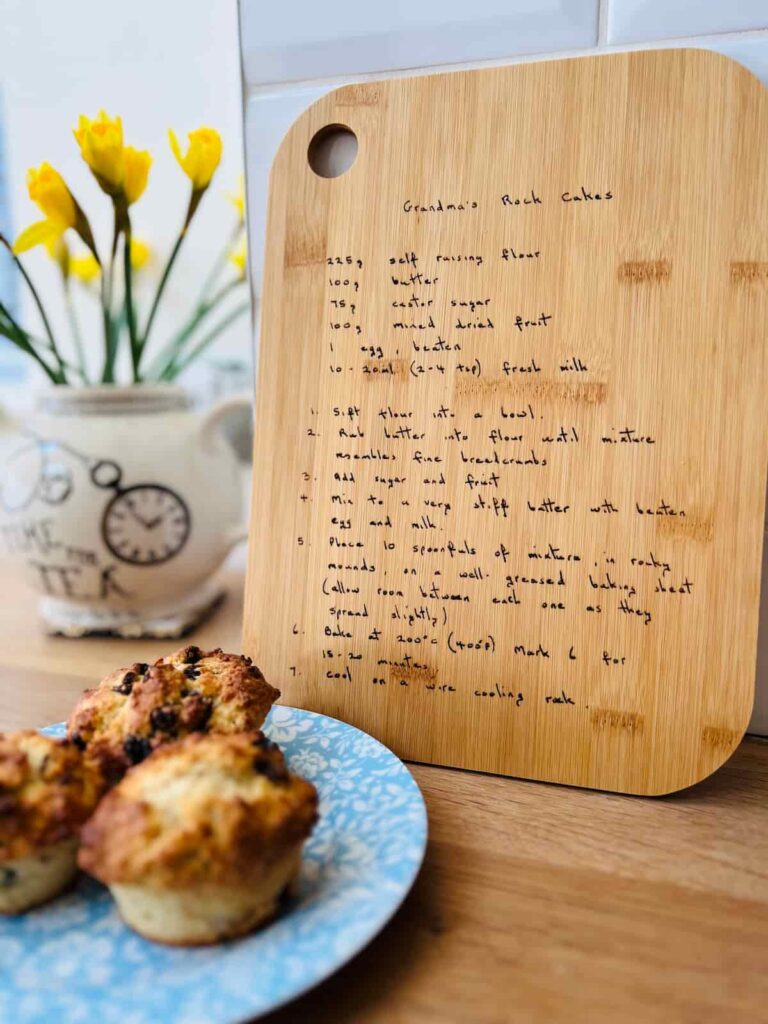 Grandma's Rock Cakes
225g self raising flour
100g butter
75g castor sugar
100g mixed dried fruit
1 egg, beaten
10-20ml (2-4 tsp) fresh milk
1. Sift flour into a bowl.
2. Rub butter into flour until mixture
resembles fine breadcrumbs
3. Add sugar and fruit
4. Mix to a very stiff batter with beaten
egg and milk.
5. Place 10 spoonfuls of mixture, in rocky
mounds, on a well-greased baking sheet
(allow room between each one as they
spread slightly)
6. Bake at 200°c (400°F) Mark 6 for
15-20 minutes
7. Cool on a wire cooling rack.
TIME FOR
TEA